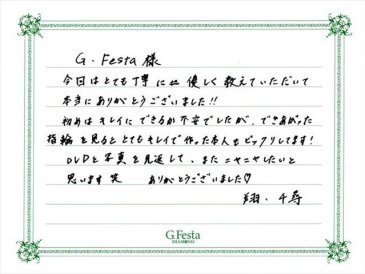 G.Festa 様
今日はとても丁寧に 優しく教えていただいて
本当にありがとうございました!!
初めはキレイにできるか不安でしたが、できあがった
指輪を見ると とてもキレイで作った本人もビックリしてます!
DVDと写真を見返して、またニヤニヤしたいと
思います 笑 ありがとうございました♡
翔・千尋
G.Festa
DIAMOND